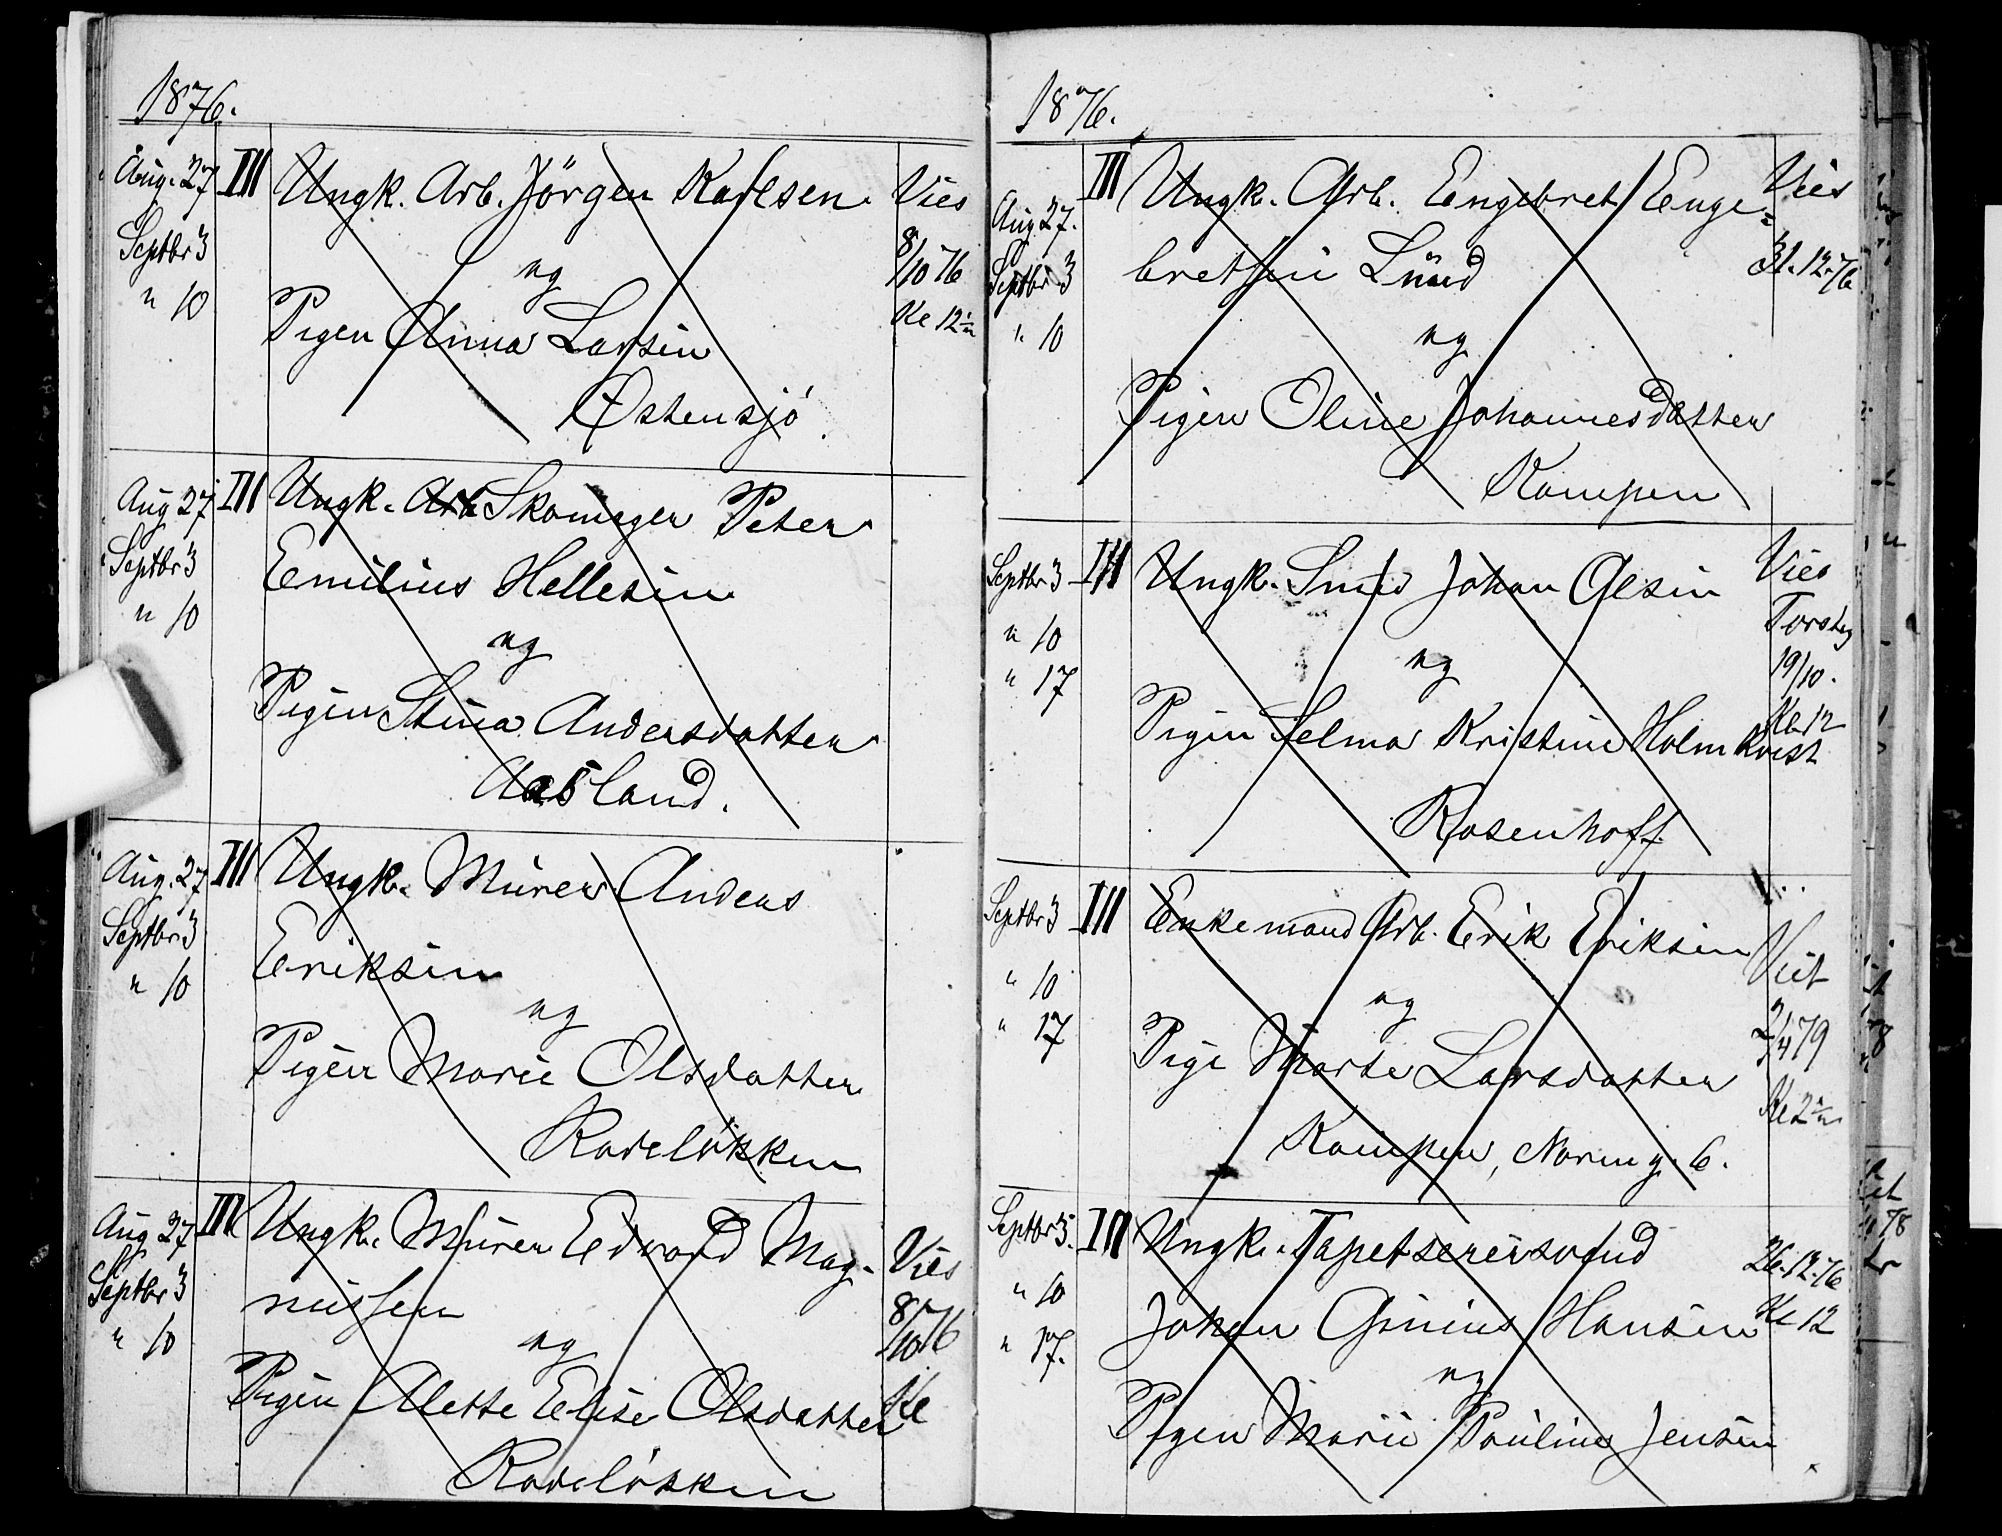 1876.
Aug. 27 III Ungk. Arb. Jörgen Karlsen Vies
Septbr 3 8/10 76
" 10 og Kl 12 1/2
Pigen Anna Larsen
Østensjö
Aug 27 III Ungk. Arb Skomager Peter
Septbr 3 Emilius Hellesen
" 10 og
Pigen Stina Andersdatter
Aasland.
Aug. 27 III Ungk. Murer Anders
Septbr 3 Eriksen
" 10 og
Pigen Marie Olsdatter
Rodeløkken
Aug 27 III Ungk. Murer Edvard Mag- Vies
Septbr 3 nussen 8/10 76
" 10 og
Pigen Alette Elise Olsdatter Kl
Rodeløkken
1876.
Aug. 27. III Ungk. Arb. Engebret Enge= Vies
Septbr 3 bretsen Lund 31.12.76
" 10 og
Pigen Oline Johannesdatter
Kampen
Septbr 3 III Ungk. Smed Johan Olsen Vies
" 10 og Torsdag
" 17 19/10.
Pigen Selma Kristine Holmkvist Kl 12
Rosenhoff
Septbr 3 III Enkemand Arb. Erik Eriksen Viet
" 10 og 2/4 79
" 17 Pige Marte Larsdatter Kl 2 1/2
Kampen, Normg. 6.
Septbr 3. III Ungk. Tapetserersvend 26.12.76
" 10 Johan Ginius Hansen Kl 12
" 17. og
Pigen Marie Pauline Jensen